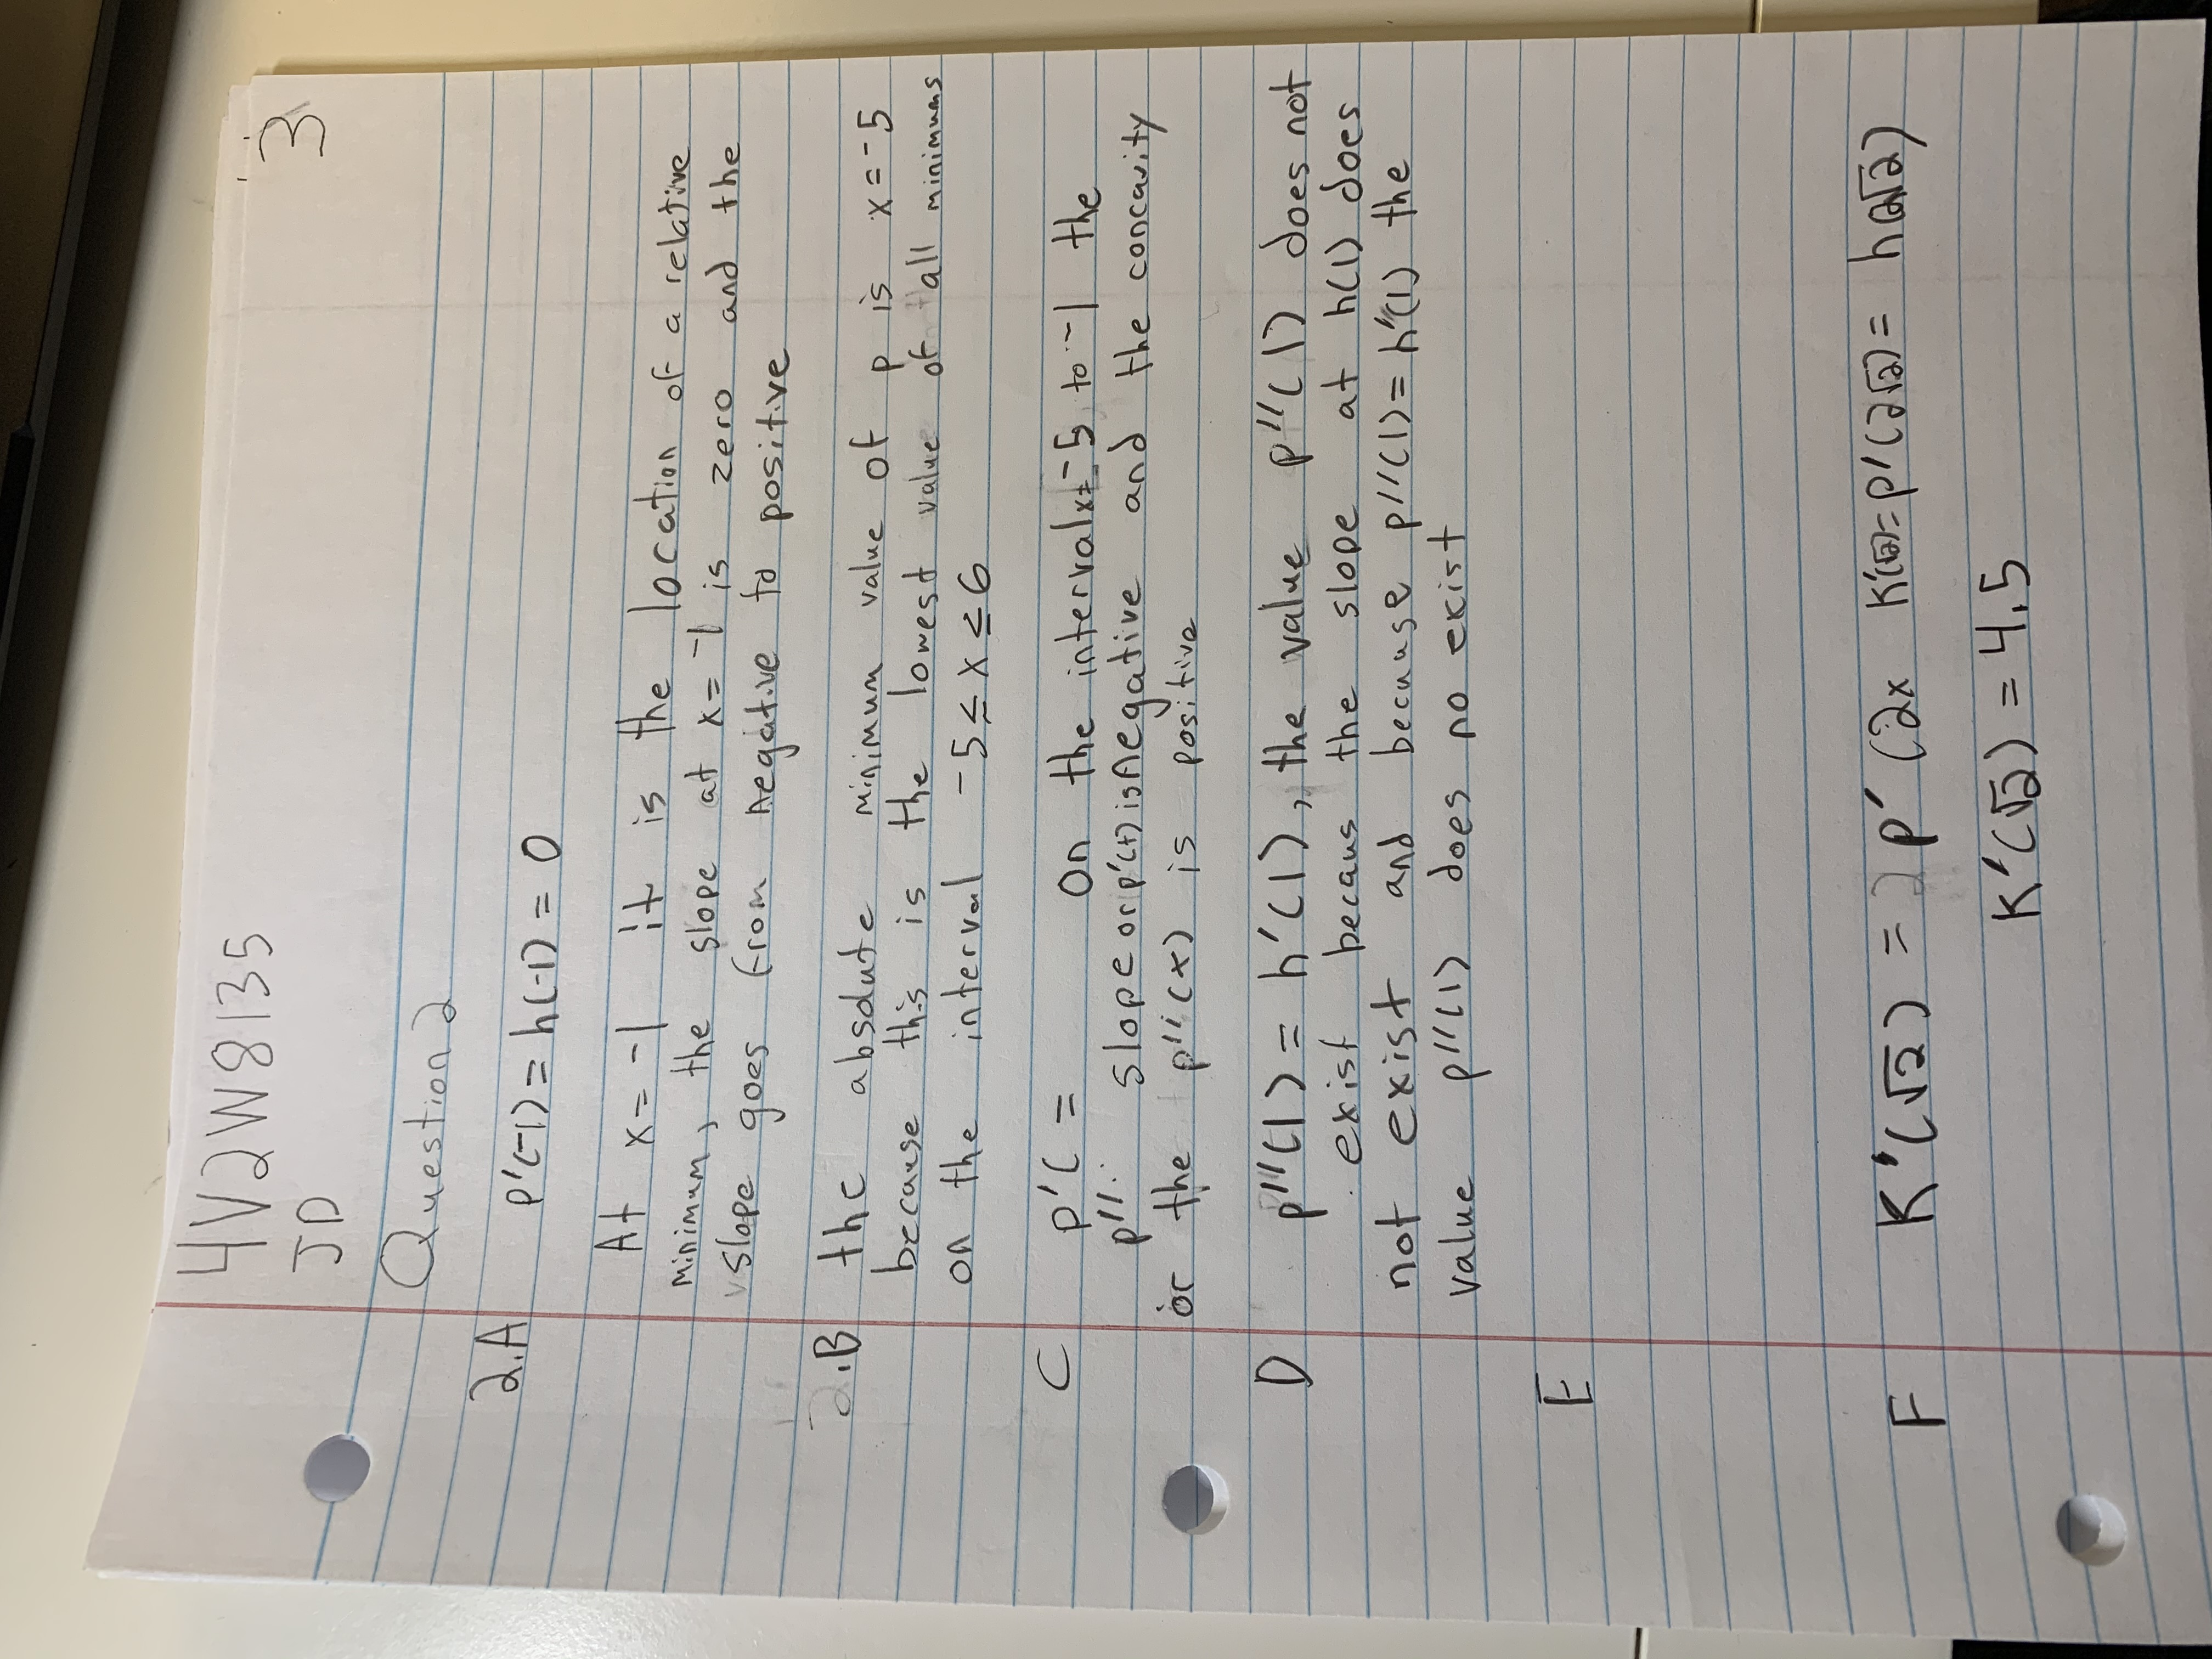 4V2W8135
3
JD
Question 2
2.A p'(-1) = h(-1) = 0
At x = -1 it is the location of a relative
minimum, the slope at x = -1 is zero and the
slope goes from negative to positive
2.B the absolute minimum value of p is x = -5
because this is the lowest value of all minimums
on the interval -5 ≤ x ≤ 6
C p'( = On the interval x = -5 to -1 the
p'' slope or p'(t) is negative and the concavity
or the p''(x) is positive
D p''(1) = h'(1), the value p''(1) does not
exist becaus the slope at h(1) does
not exist and because p''(1) = h'(1) the
value p''(1) does no exist
E
F K'(√2) = 2 p' (2x K'(√2) = p'(2√2) = h(2√2)
K'(√2) = 4.5